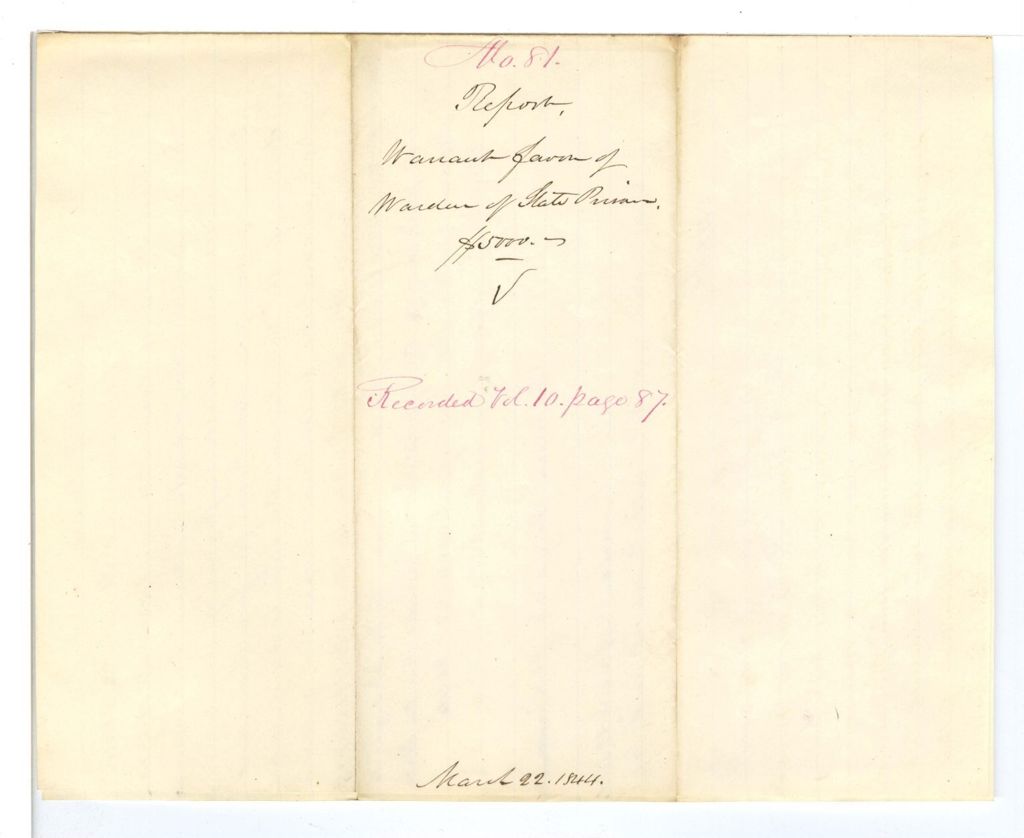 No. 81.
Report,
Warrant favor of
Warden of State Prison.
$5000.
Recorded Vol. 10. page 87.
March 22. 1844.